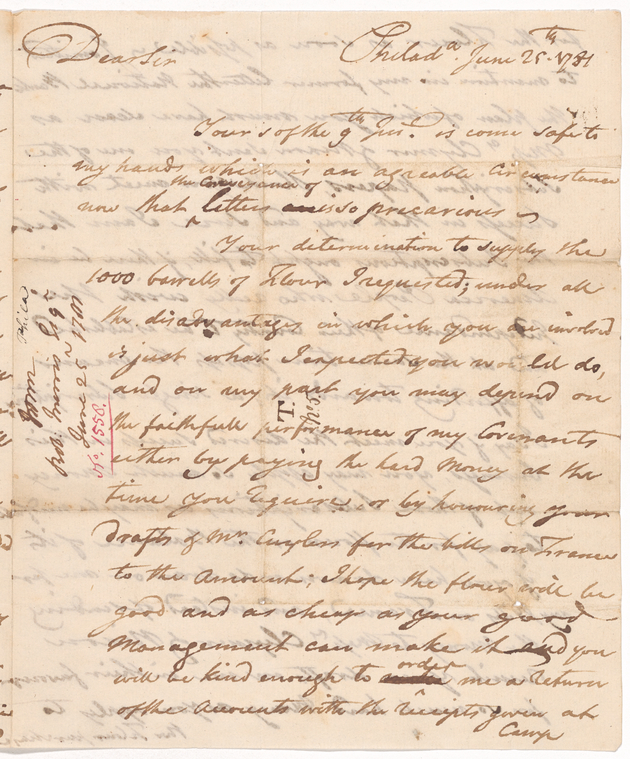 Dear Sir
Philad.a June 25.th 1781
Yours of the 9th Ins.t is come safe to
my hands which is an agreable Circumstance
the Conveyance of
now that letters is so precarious
Your determination to supply the
1000 barrells of Flour I requested; under all
the disadvantages in which you are involved
is just what I expected you would do,
and on my part you may depend on
the faithfull performance of my Covenants
either by paying the hard Money at the
time you require or by honouring your
drafts & Mr. Cuylers for the bills on France
to the Amount; I hope the flour will be
good and as cheap as your good
Management can make it and you
order
will be kind enough to me a Return
of the Amounts with the Receipts given at
Camp
From
Rob. Morris Esqr
Phila
June 25 1781
No. 1558.
T
No. 5.